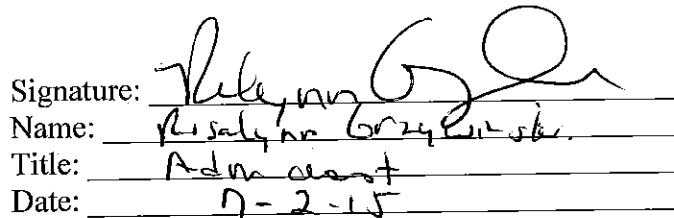 Signature:
Name: Risalynn Grzywinski.
Title: Adm asst
Date: 7-2-15